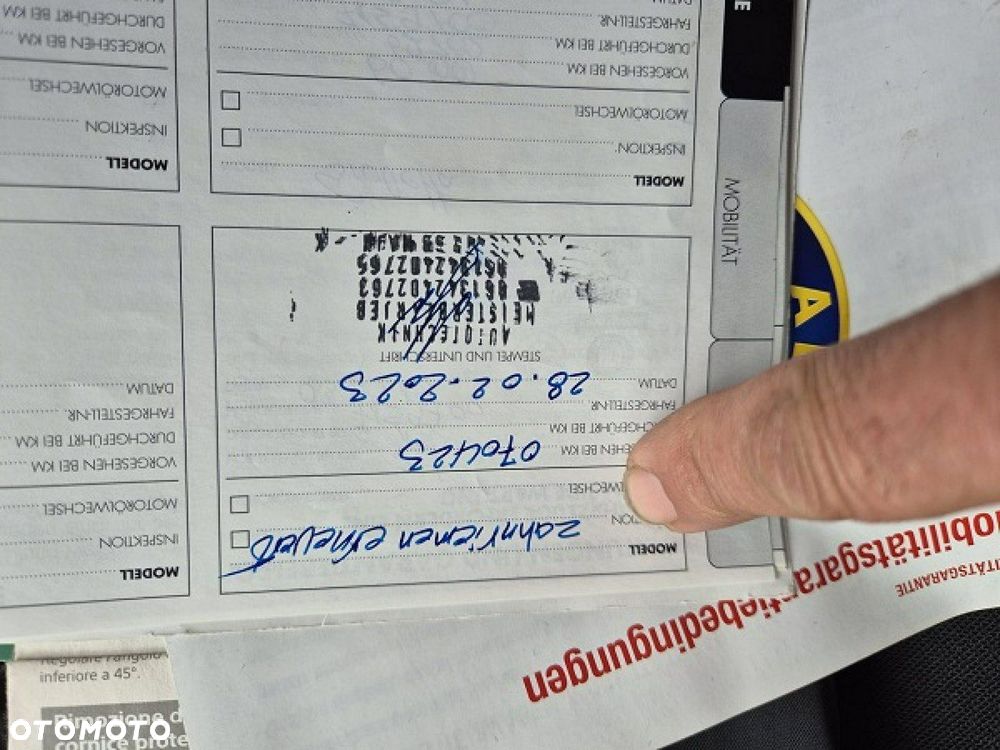 MODELL
zahnriemen erneuert
INSPEKTION
MOTORÖLWECHSEL
VORGESEHEN BEI KM
070423
DURCHGEFÜHRT BEI KM
FAHRGESTELL-NR.
DATUM
28.02.2023
STEMPEL UND UNTERSCHRIFT
AUTOTECHNIK
MEISTERBETRIEB
0613424D2763
0613424D2765
MODELL
INSPEKTION
MOTORÖLWECHSEL
VORGESEHEN BEI KM
DURCHGEFÜHRT BEI KM
FAHRGESTELL-NR.
DATUM
MODELL
INSPEKTION
MOTORÖLWECHSEL
VORGESEHEN BEI KM
DURCHGEFÜHRT BEI KM
FAHRGESTELL-NR.
DATUM
MODELL
INSPEKTION
MOTORÖLWECHSEL
VORGESEHEN BEI KM
DURCHGEFÜHRT BEI KM
MOBILITÄT
Regolare l'angolo
inferiore a 45°.
Rimozione d
cornice prote
OTOMOTO